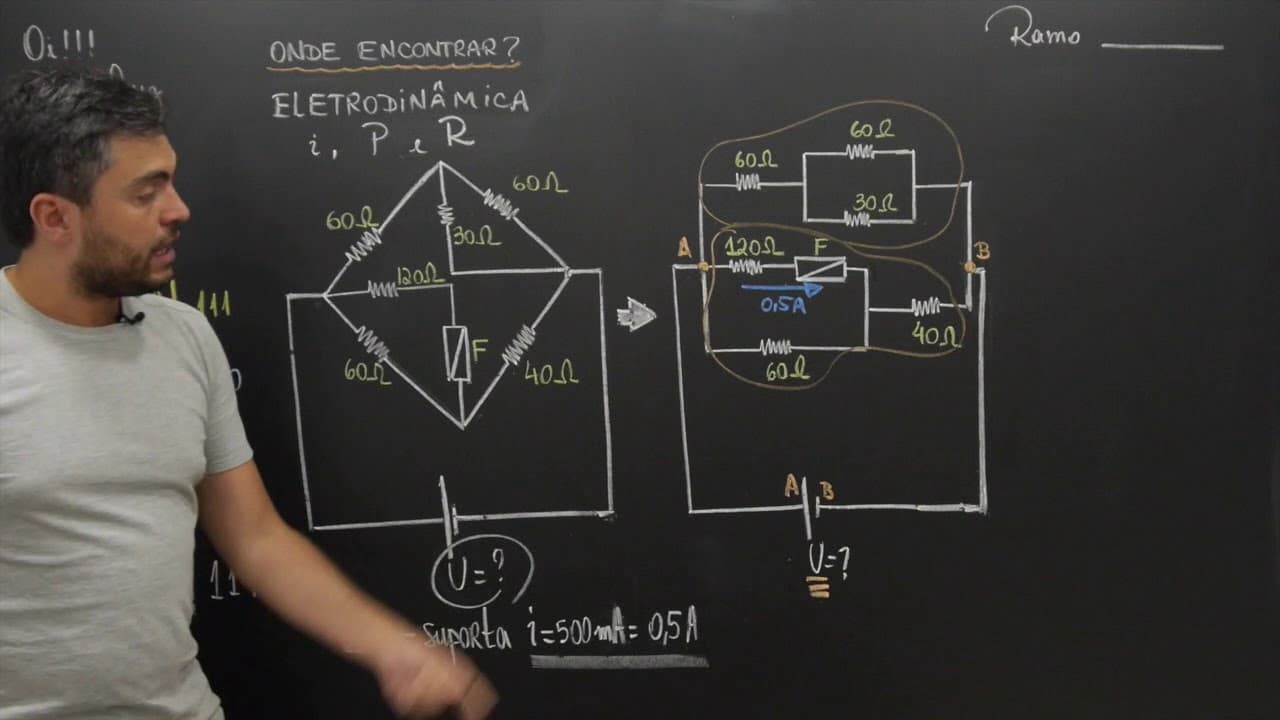 Oi!!!
ONDE ENCONTRAR?
ELETRODINÂMICA
i, P e R
60Ω
60Ω
30Ω
120Ω
60Ω
F
40Ω
U=?
suporta i=500mA= 0,5A
Ramo
60Ω
60Ω
30Ω
A
120Ω
F
B
0,5A
40Ω
60Ω
A
B
U=?